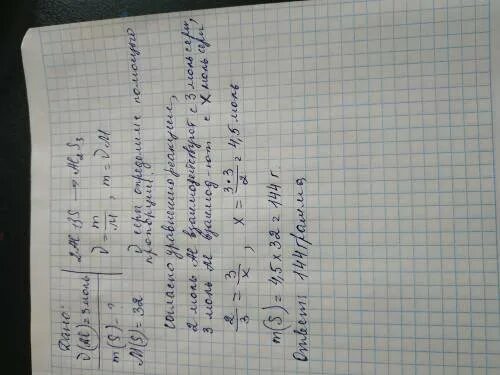 Дано:
ν(Al) = 3 моль
m(S) - ?
M(S) = 32
2Al + 3S → Al₂S₃
ν = m/M, m = ν M
ν серы определим с помощью
пропорции.
согласно уравнению реакции,
2 моль Al взаимодействуют с 3 моль серы,
3 моль Al взаимод-ют с x моль серы,
2/3 = 3/x, x = 3*3/2 = 4,5 моль
m(S) = 4,5 x 32 = 144 г.
Ответ: 144 грамма